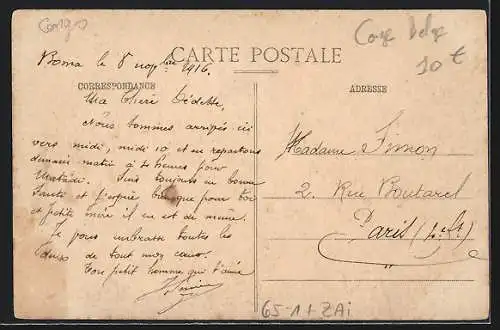 Congo
Congo belge
10 €
CARTE POSTALE
CORRESPONDANCE
ADRESSE
Boma le 8 novbre 1916.
Ma Chère Dédette,
Nous sommes arrivés ici
vers midi, midi 10 et en repartons
demain matin à heures pour
Matadi. Suis toujours en bonne
Santé et j'espère que pour toi
et petite mère il en est de même.
Je vous embrasse toutes les
deux de tout mon cœur.
Ton petit homme qui t'aime
Madame Simon
2, Rue Boutarel
Paris (4e At)
65-1+ZAi